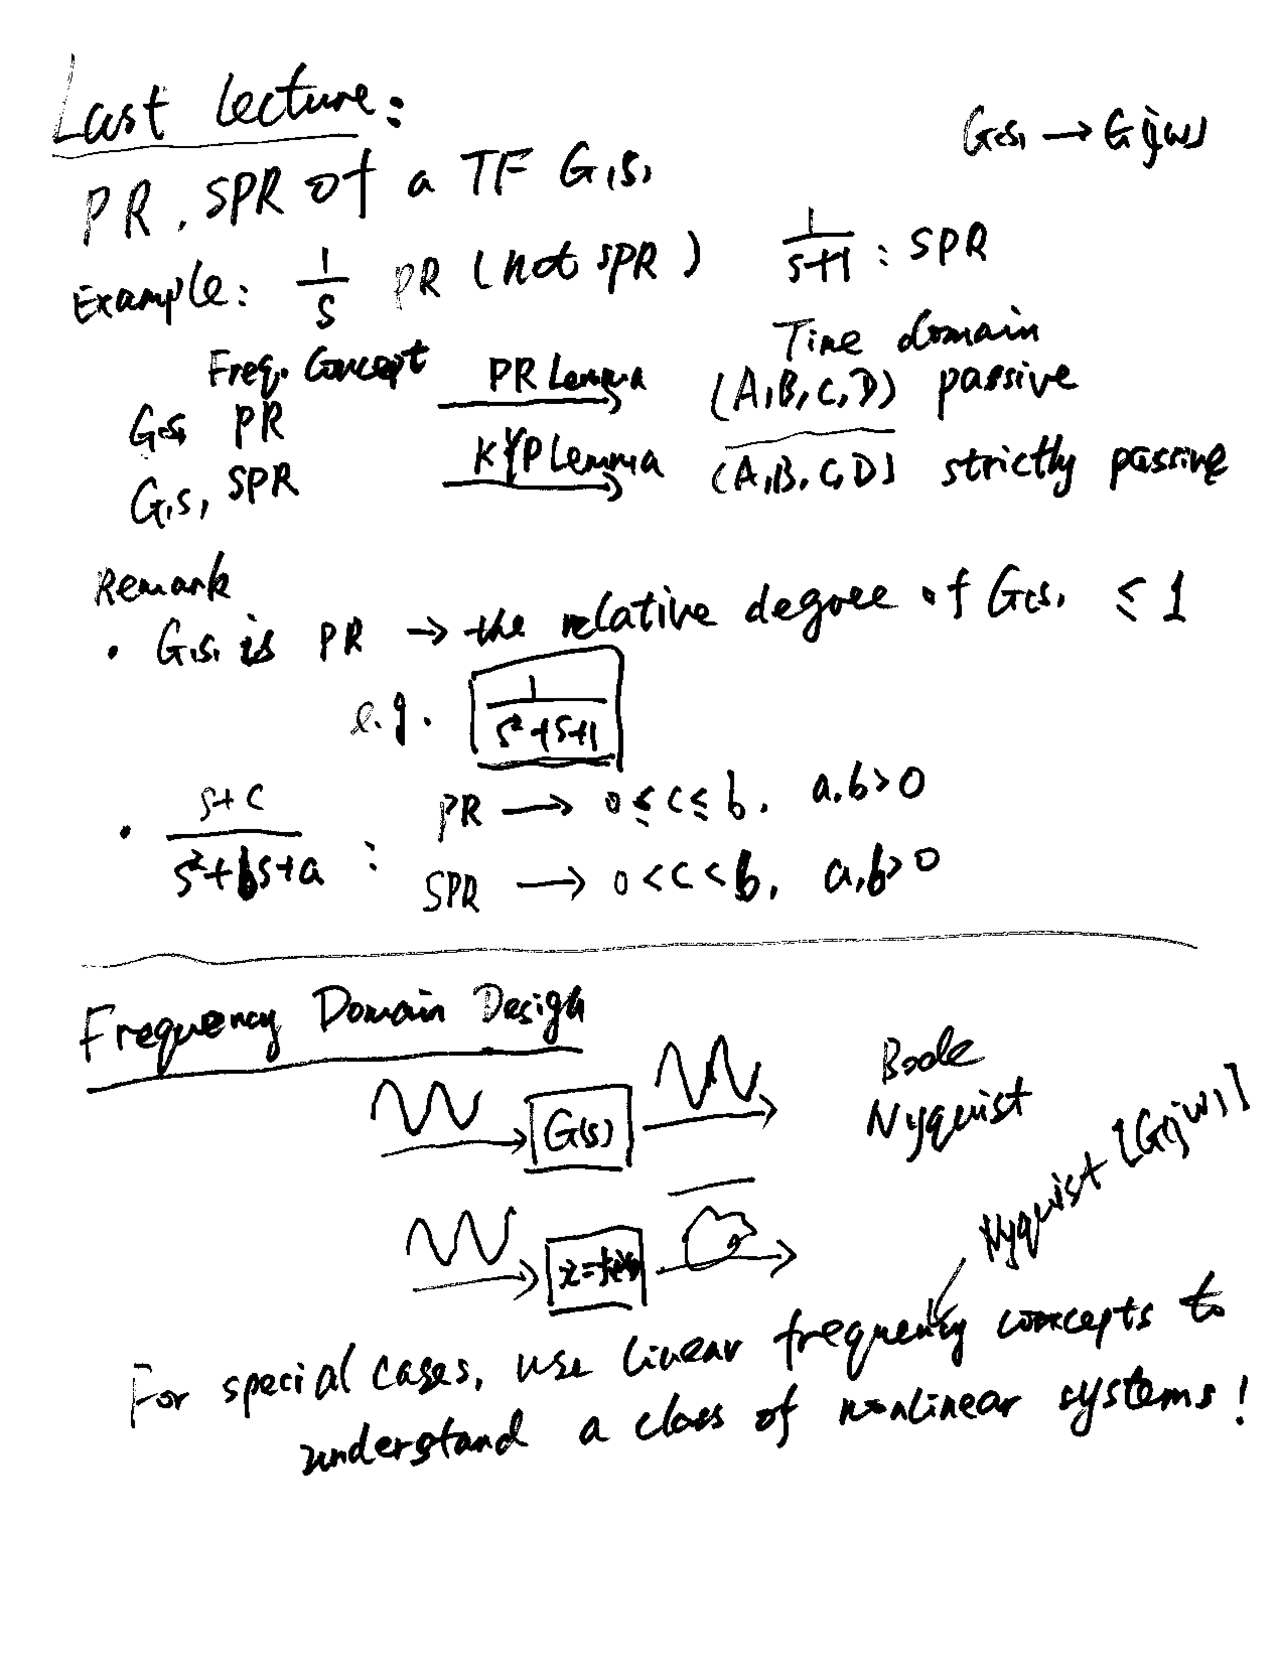 Last lecture:
G(s) → G(jw)
PR, SPR of a TF G(s)
Example: 1/s PR (not SPR) 1/(s+1) : SPR
Freq. Concept Time domain
G(s) PR PR Lemma (A,B,C,D) passive
G(s) SPR KYP Lemma (A,B,C,D) strictly passive
Remark
• G(s) is PR → the relative degree of G(s) ≤ 1
e.g. 1/(s²+s+1)
• (s+c)/(s²+bs+a) : PR → 0 ≤ c ≤ b, a,b>0
SPR → 0 < c < b, a,b>0
Frequency Domain Design
G(s) Bode
Nyquist
Nyquist [G(jw)]
For special cases, use linear frequency concepts to
understand a class of nonlinear systems!